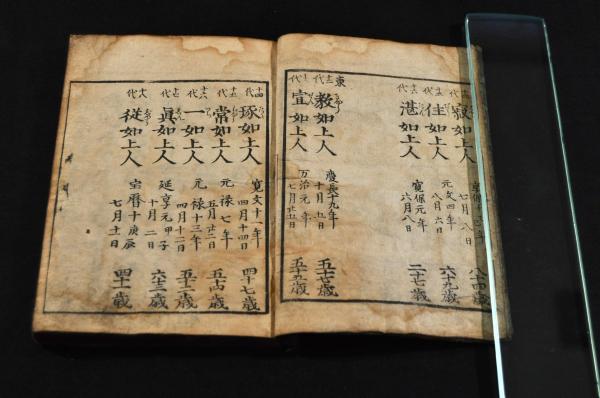 寂如上人
七月八日
八十四歳
十五代
住如上人
元文四年
八月六日
六十九歳
十六代
湛如上人
寛保元年
六月八日
二十七歳
東
十二代
教如上人
慶長十九年
十月五日
五十七歳
十三代
宣如上人
万治元年
七月廿五日
十四代
琢如上人
寛文十一年
四月十四日
四十七歳
十五代
常如上人
元禄七年
五月廿二日
五十四歳
十六代
一如上人
元禄十三年
四月十二日
五十二歳
十七代
眞如上人
延享元甲子
十月二日
六十三歳
十八代
從如上人
宝暦十庚辰
七月十一日
四十一歳